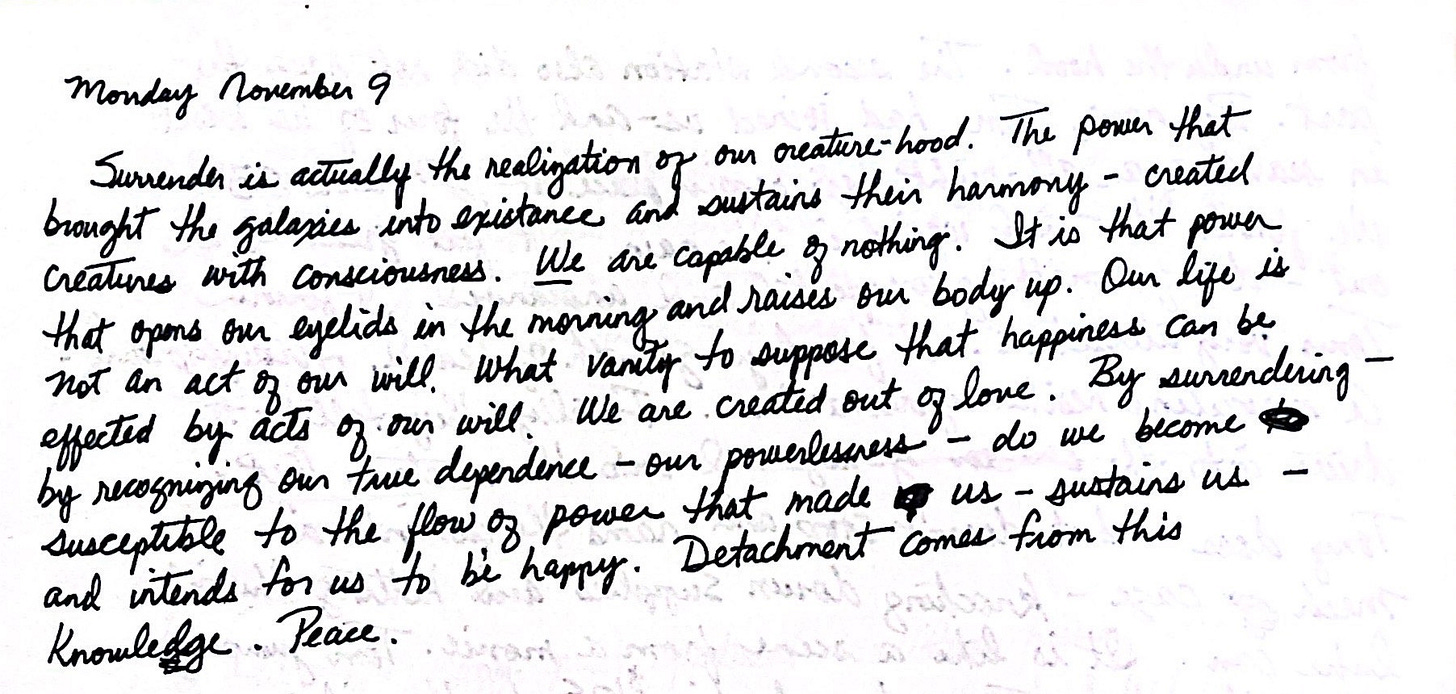 Monday November 9
Surrender is actually the realization of our creature-hood. The power that
brought the galaxies into existance and sustains their harmony - created
creatures with consciousness. We are capable of nothing. It is that power
that opens our eyelids in the morning and raises our body up. Our life is
not an act of our will. What vanity to suppose that happiness can be
effected by acts of our will. We are created out of love. By surrendering -
by recognizing our true dependence - our powerlessness - do we become
susceptible to the flow of power that made us - sustains us -
and intends for us to be happy. Detachment comes from this
Knowledge. Peace.